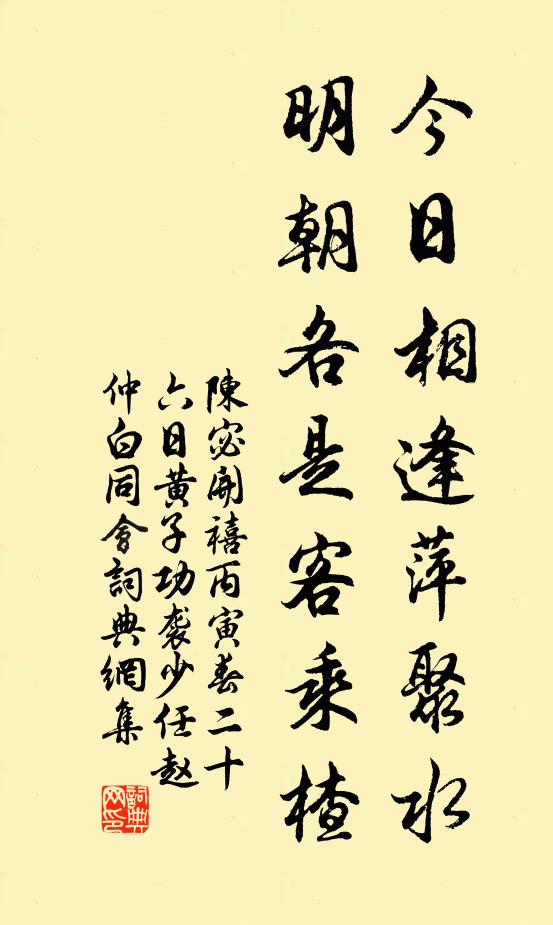 今日相逢萍聚水
明朝各是客乘楂
陳宓開禧丙寅春二十
六日黄子功袭少任赵
仲白同會詞典網集
詞典
网印